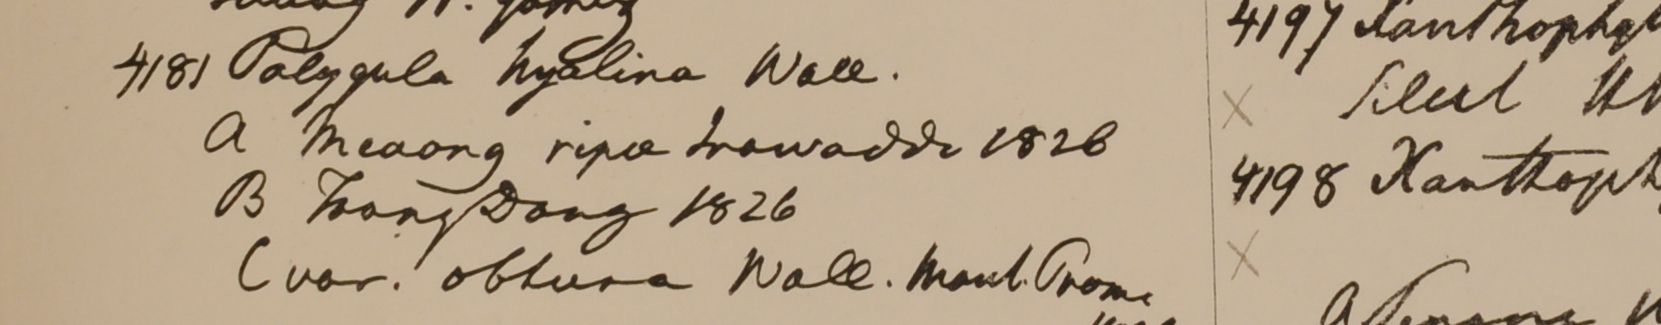 H. Gomez
4181 Polygula hyalina Wall.
A Meaong ripæ Irawaddi 1826
B Trong Dong 1826
C var. obtusa Wall. Mont. Prome
4197 Xanthophyl
4198 Xanthoph